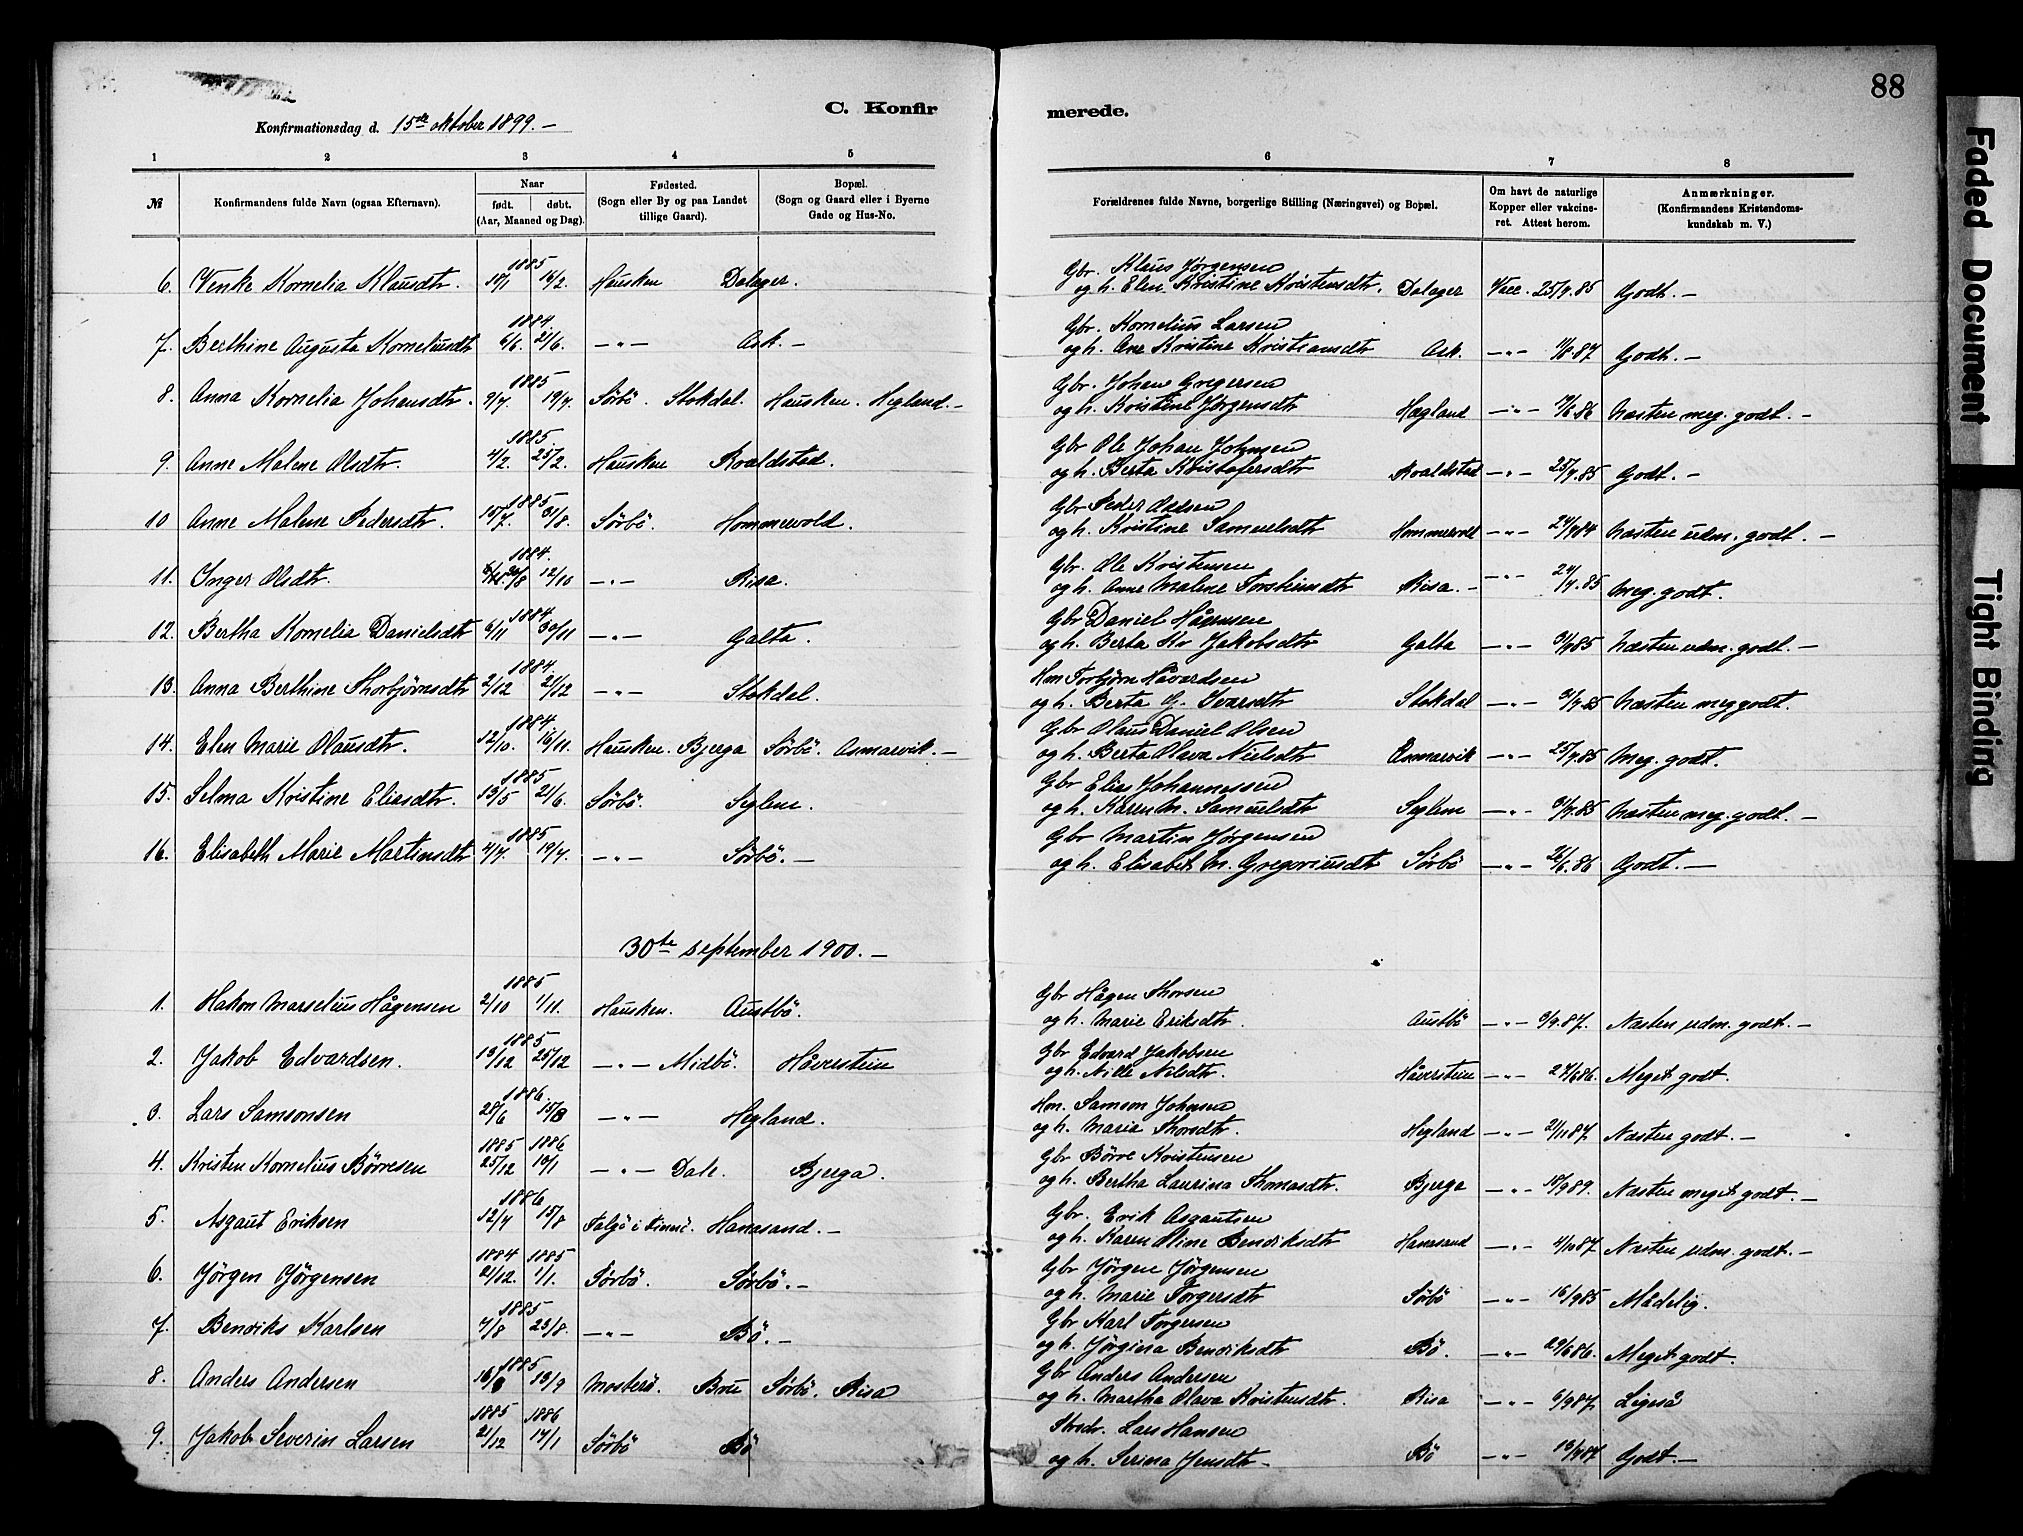 88
C. Konfirmerede.
Konfirmationsdag d. 15de oktober 1899. –
1 2 3 4 5 6 7 8
№ Konfirmandens fulde Navn (ogsaa Efternavn). Naar født. døbt. (Aar, Maaned og Dag). Fødested. (Sogn eller By og paa Landet tillige Gaard). Bopæl. (Sogn og Gaard eller i Byerne Gade og Hus-No. Forældrenes fulde Navne, borgerlige Stilling (Næringsvei) og Bopæl. Om havt de naturlige Kopper eller vakcineret. Attest herom. Anmærkninger. (Konfirmandens Kristendomskundskab m. V.)
1885 Gbr. Klaus Jørgensen
6. Venke Kornelia Klausdtr. 18/1 16/2. Hausken Dalager. og h. Elen Kristine Kristensdtr. Dalager Vacc. 25/9.85 Godt. –
1884. Gbr. Kornelius Larsen
7. Berthine Augusta Korneliusdtr 6/6. 21/6. –"– Ask. – og h. Ane Kristine Kristiansdtr Ask. –"– 11/8.87 Godt. –
1885. Gbr. Johan Gregersen
8. Anna Kornelia Johansdtr. 9/7. 19/7. Sörbö. Stokdal. Hausken. Hegland. – og h. Kristine Jørgensdtr Hægland –"– 7/6.86 Næsten meg. godt. –
1885. Gbr Ole Johan Johnsen
9. Anne Malene Olsdtr. 4/2. 25/2. Hausken Kvaldstad. og h. Berta Kristofersdtr Kvaldstad –"– 25/9.85 Godt. –
1885 Gbr Peder Aadsen
10 Anne Malene Pedersdtr. 15/7. 31/8. Sörbö. Hommervold. og h. Kristine Samuelsdtr Hommervoll –"– 24/9 84 Næsten udm. godt. –
1884. Gbr. Ole Kristensen
11. Inger Olsdtr. 30/8 12/10 –"– Risa. og h. Anne Malene Torsteinsdtr Risa. –"– 24/9.85 Meg. godt.
1884 Gbr Daniel Hågensen
12. Bertha Kornelia Danielsdtr 4/11 30/11 –"– Galta. og h. Berta Kr Jakobsdtr Galta –"– 3/9 85 Næsten udm. godt. –
1884 Hm Torbjörn Håvardsen
13. Anna Berthine Thorbjörnsdtr 2/12 21/12 –"– Stokdal. og h. Berta G. Ivarsdtr Stokdal –"– 3/9.85 Næsten meg godt.
1884 Gbr Olaus Daniel Olsen
14. Elen Marie Olausdtr. 12/10. 16/11. Hausken. Bjerga Sörbö. Asmarvik. – og h. Berta Olava Nielsdtr Asmarvik –"– 25/9.85 Meg. godt.
1885 Gbr Elias Johannessen
15. Selma Kristine Eliasdtr. 13/5 21/6. Sörbö. Seglem. og h. Karen M. Samuelsdtr Seglem –"– 3/9.85 Næsten meg. godt. –
1885 Gbr Martin Jørgensen
16. Elisabeth Marie Martinsdtr 4/7. 19/7. –"– Sörbö. – og h. Elisabet M. Gregoriusdtr Sörbö –"– 26/6.86 Godt. –
30te september 1900. –
1885 Gbr Hågen Thorsen
1. Hakon Marselius Hågensen 2/10 1/11. Hausken. Austbö. og h. Marie Eriksdtr. Austbö –"– 3/9.87. Næsten udm. godt. –
1885 Gbr Edvard Jakobsen
2. Jakob Edvardsen. 13/12 25/12 –"– Midbö. Håverstein og h. Nille Nilsdtr. Håverstein –"– 27/6 86. Meget godt.
1886. Hm. Samson Johnsen
3. Lars Samsonsen 25/6 15/8 –"– Hegland. og h. Maria Thorsdtr. Hegland –"– 2/11 87 Næsten godt. –
1885 1886 Gbr Börre Kristensen
4. Kristen Kornelius Börresen 25/12 10/1 –"– Dale. Bjerga. og h. Bertha Laurina Thomasdtr. Bjerga –"– 18/9 89. Næsten meget godt. –
1886 Gbr. Erik Asgautsen
5. Asgaut Eriksen 12/7 15/8 Talgö i Finnö. Hanasand. – og h. Karen Oline Bendiksdtr Hanasand –"– 4/10 87 Næsten udm. godt. –
1884 1885 Gbr Jörgen Jörgensen
6. Jörgen Jörgensen 21/12. 1/1. Sörbö. Sörbö. – og h. Marie Torgersdtr Sörbö –"– 16/9 85 Mådelig.
1885 Gbr Karl Torgersen
7. Bendiks Karlsen 4/8 23/8. –"– Bö. – og h. Jörgina Bendiksdtr Bö. –"– 29/6 86. Meget godt.
1885 Gbr Anders Andersen
8. Anders Andersen 16/8 13/9 Mosterö. Bru Sörbö. Risa og h. Martha Olava Kristensdtr. Risa –"– 6/9 87. Ligeså
1885 1886 Lars Hansen
9. Jakob Severin Larsen 21/12 17/1 Sörbö Bö og h. Serina Jensdtr – Bö –"– 13/9 87 Godt. –
Faded Document
Tight Binding